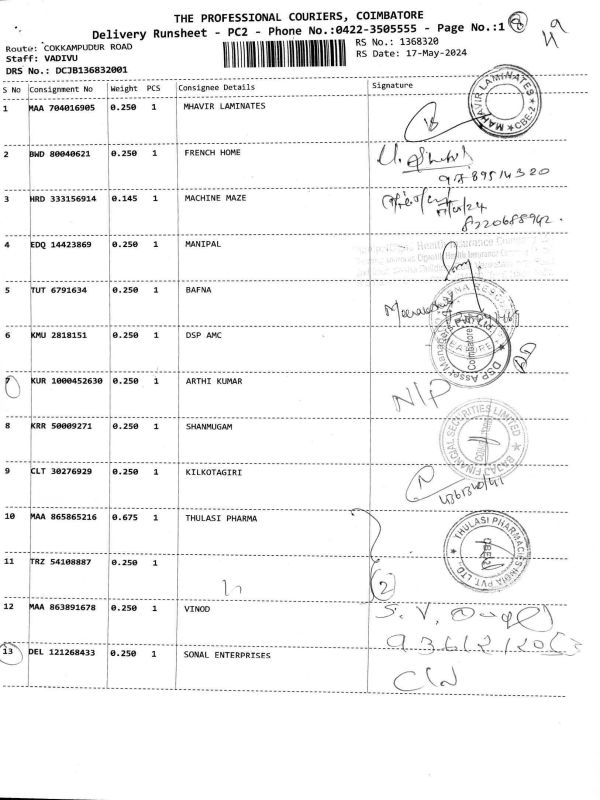 THE PROFESSIONAL COURIERS, COIMBATORE
Delivery Runsheet - PC2 - Phone No.:0422-3505555 - Page No.:1
Route: COKKAMPUDUR ROAD
Staff: VADIVU
DRS No.: DCJB136832001
RS No.: 1368320
RS Date: 17-May-2024
S No Consignment No Weight PCS Consignee Details Signature
1 MAA 704016905 0.250 1 MHAVIR LAMINATES
MAHAVIR LAMINATES ★ CBE-2 ★
2 BWD 80040621 0.250 1 FRENCH HOME
3 HRD 333156914 0.145 1 MACHINE MAZE
8220688942.
4 EDQ 14423869 0.250 1 MANIPAL
Health Insurance
5 TUT 6791634 0.250 1 BAFNA
6 KMU 2818151 0.250 1 DSP AMC
DSP Asset Coimbatore
7 KUR 1000452630 0.250 1 ARTHI KUMAR
N/P
8 KRR 50009271 0.250 1 SHANMUGAM
BAJAJ FINANCIAL SECURITIES LIMITED
9 CLT 30276929 0.250 1 KILKOTAGIRI
10 MAA 865865216 0.675 1 THULASI PHARMA
THULASI PHARMACIES INDIA PVT LTD
11 TRZ 54108887 0.250 1
2
12 MAA 863891678 0.250 1 VINOD
13 DEL 121268433 0.250 1 SONAL ENTERPRISES